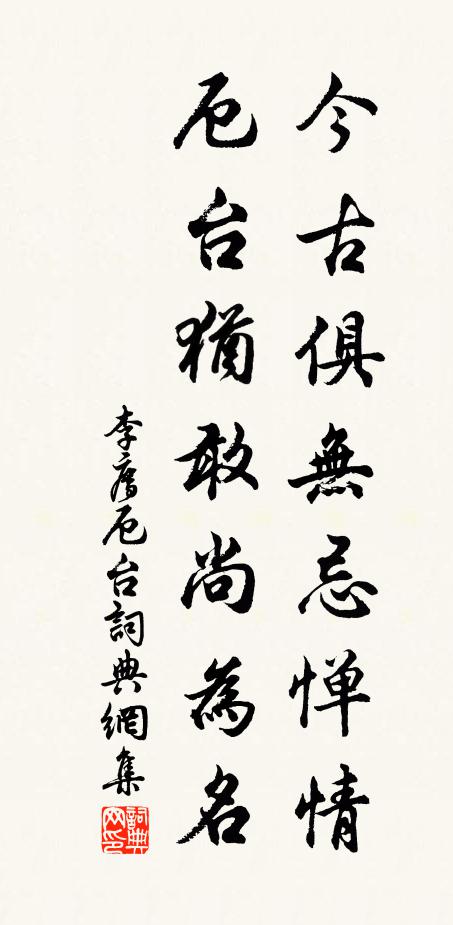 今古俱無忌惮情
厄台猶敢尚為名
李廌厄台詞典網集
詞典网印